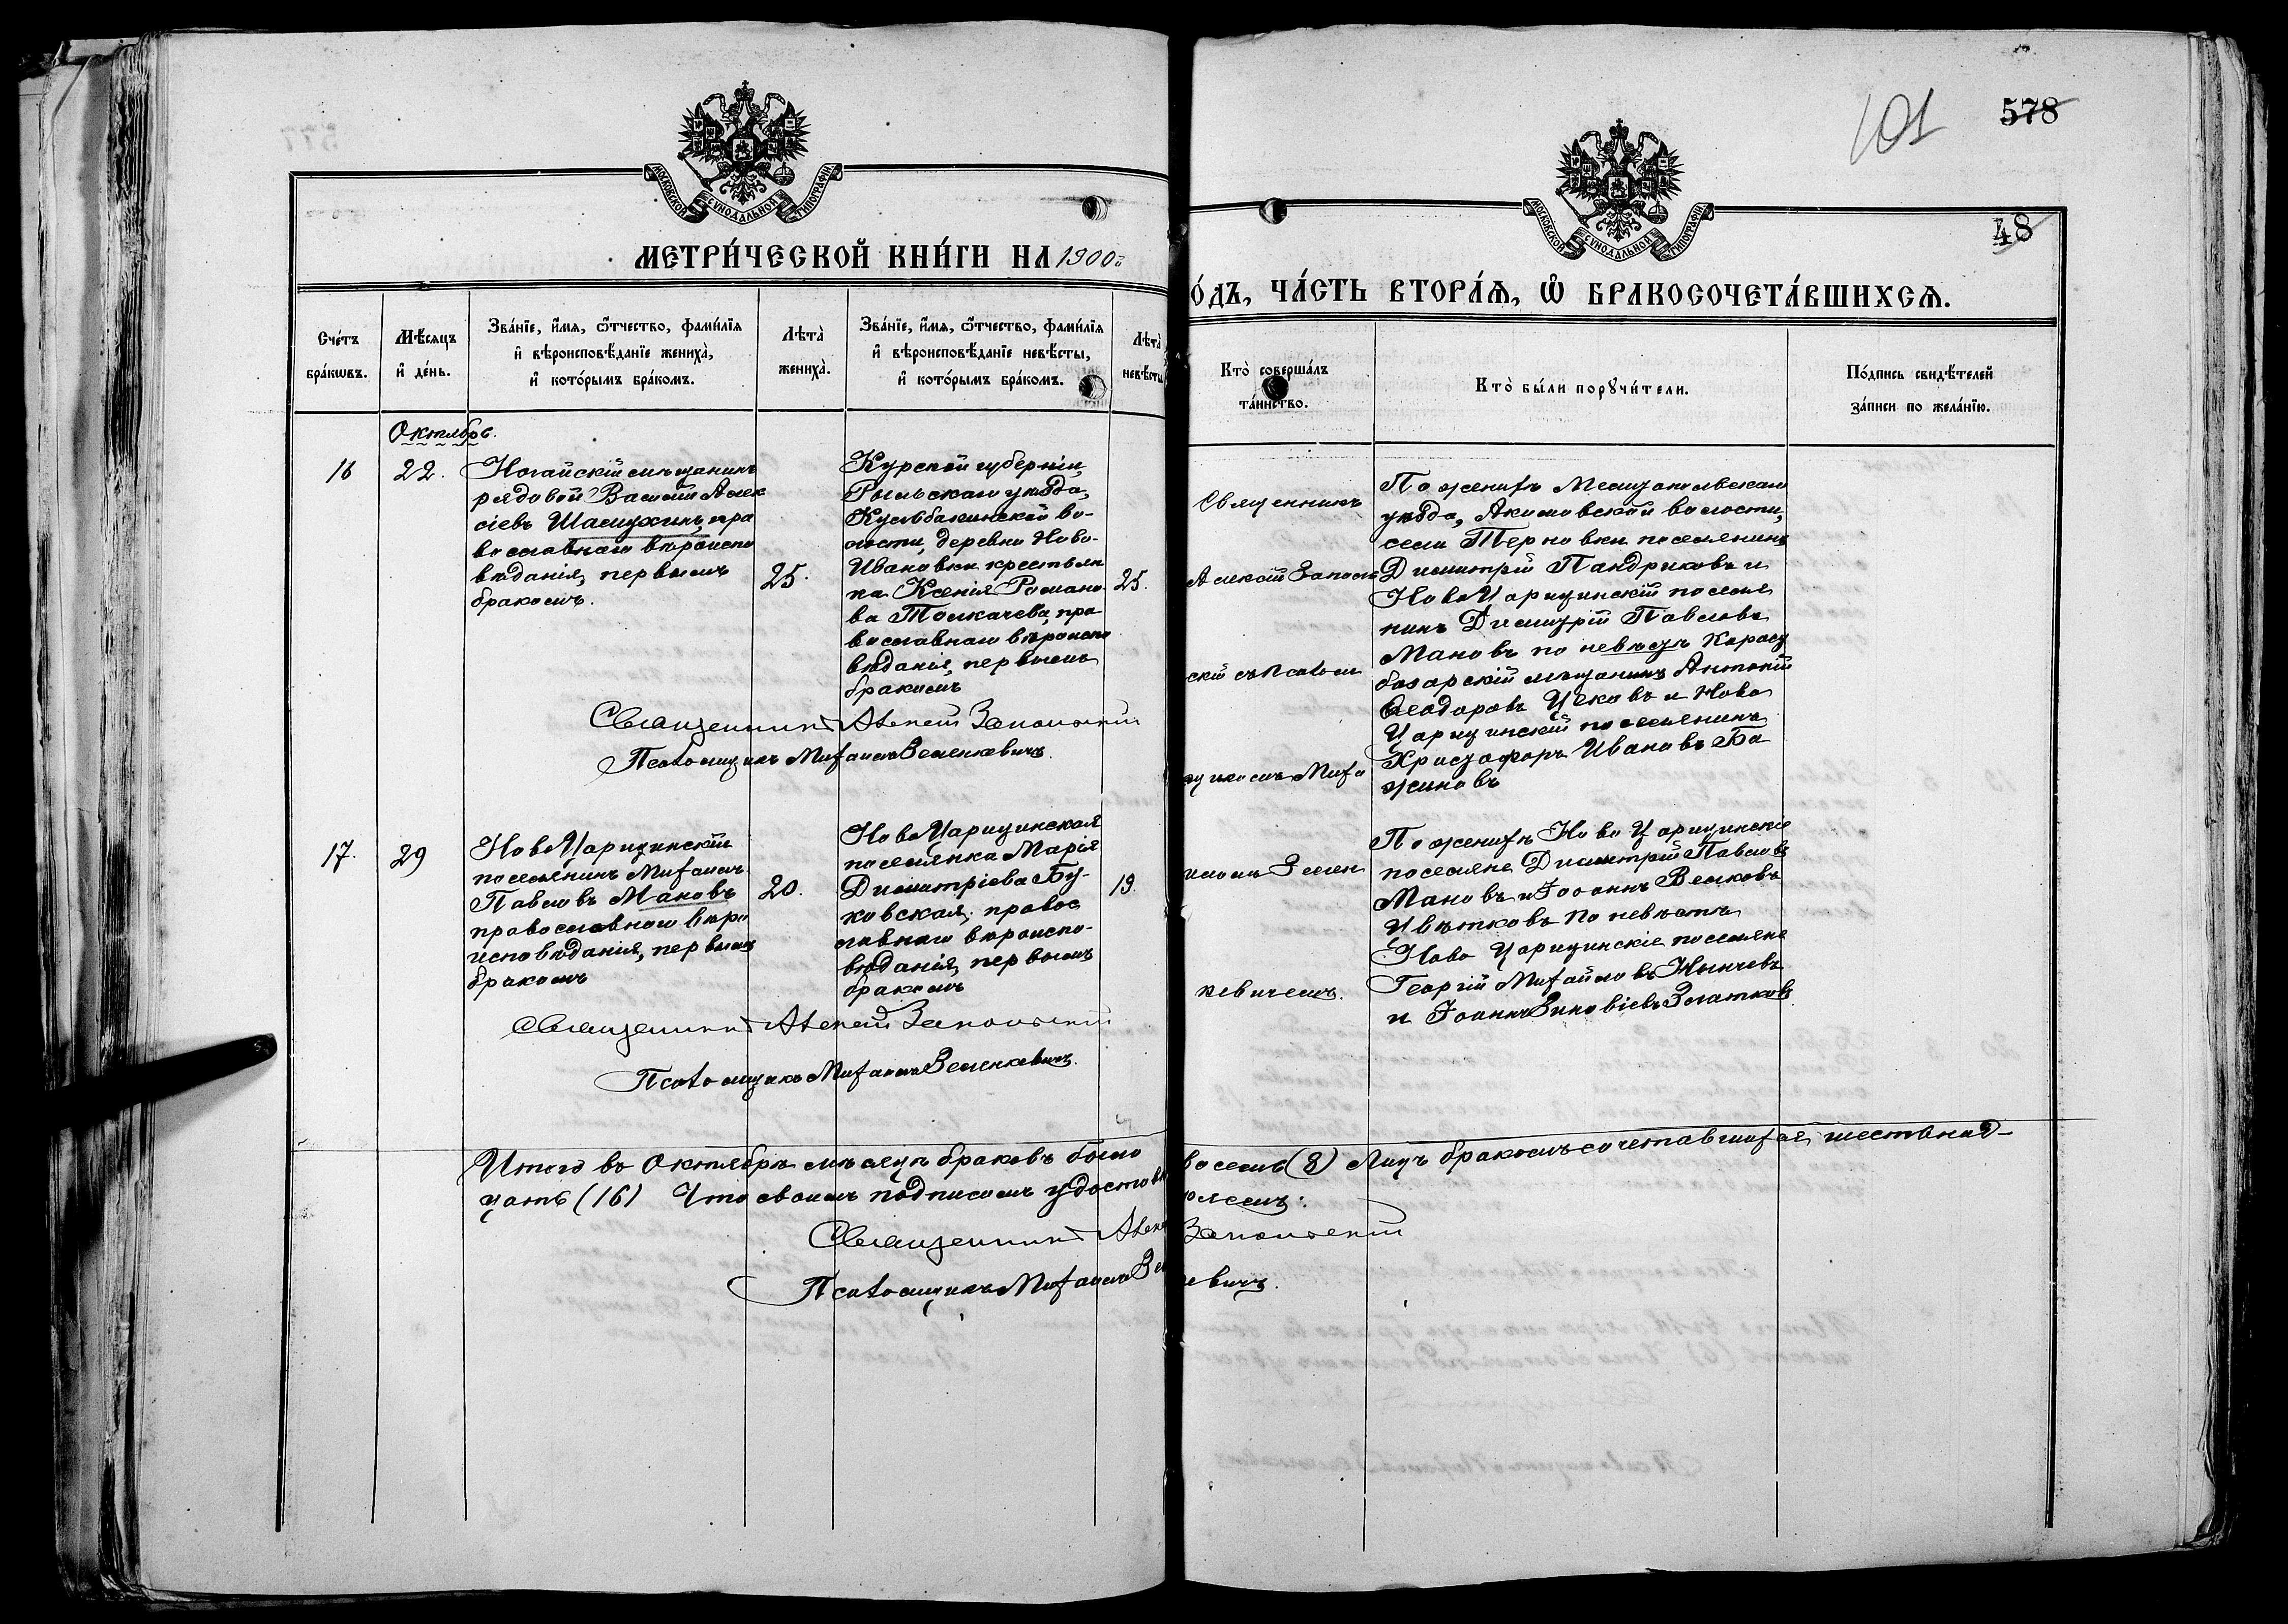 101 578
48
МОСКОВСКОЙ СѴНОДАЛЬНОЙ ТИПОГРАФІИ
МОСКОВСКОЙ СѴНОДАЛЬНОЙ ТИПОГРАФІИ
МЕТРИ́ЧЕСКОЙ КНИ́ГИ НА 1900
О́ДЪ, ЧА́СТЬ ВТОРА́Ѧ, Ѽ БРАКОСОЧЕТА́ВШИХСѦ.
Сче́тъ
бра́кѡвъ.
Мѣ́сяцъ
и҆ де́нь.
Зва́нїе, и҆́мѧ, ѻ҆́тчество, фами́лїѧ
и҆ вѣроисповѣ́данїе жениха̀,
и҆ кото́рымъ бра́комъ.
Лѣта̀
жениха̀.
Зва́нїе, и҆́мѧ, ѻ҆́тчество, фами́лїѧ
и҆ вѣроисповѣ́данїе невѣ́сты,
и҆ кото́рымъ бра́комъ.
Лѣта̀
невѣ́сты
Кто̀ соверша́лъ
та́инство.
Кто̀ бы́ли порꙋчи́тели.
По́дпись свидѣ́телей
за́писи по жела́нїю.
Октябрь.
16
22.
Ногайскій мѣщанинъ
рядовой Василій Алек
сіевъ Шамухинъ, пра
вославнаго вѣроиспо
вѣданія, первымъ
бракомъ.
25.
Курской губерніи,
Рыльскаго уѣзда,
Кульбакинской во-
лости, деревни Ново-
Ивановки крестьян
ка Ксенія Романо
ва Толкачева, пра
вославнаго вѣроиспо
вѣданія, первымъ
бракомъ
25.
Священникъ
Алексій Заполь
скій съ псалом
щикомъ Миха
По женихѣ Мелитопольскаго
уѣзда, Акимовской волости,
села Терновки поселянинъ
Димитрій Пандриковъ и
НовоЦарицинскій поселя
нинъ Димитрій Павловъ
Мановъ по невѣстѣ Карасу
базарскій мѣщанинъ Антоній
Ѳеодоровъ Цековъ и Ново
Царицинскій поселянинъ
Христофоръ Ивановъ Ба
жиновъ
Священникъ Алексій Запольскій
Псаломщикъ Михаилъ Зеленкевичъ.
17.
29
НовоЦарицинскій
поселянинъ Михаилъ
Павловъ Мановъ
православнаго вѣро
исповѣданія, первымъ
бракомъ
20.
НовоЦарицинская
поселянка Марія
Димитріева Бу-
ковская, правос
лавнаго вѣроиспо-
вѣданія, первымъ
бракомъ
19.
иломъ Зелен
кевичемъ.
По женихѣ НовоЦарицинскіе
поселяне Димитрій Павловъ
Мановъ и Іоаннъ Велковъ
Цвѣтковъ по невѣстѣ
Ново Царицинскіе поселяне
Георгій Михайловъ Нынчевъ
и Іоаннъ Зиновіевъ Златковъ.
Священникъ Алексій Запольскій
Псаломщикъ Михаилъ Зеленкевичъ.
Итого въ Октябрѣ мѣсяцѣ браковъ было восемь (8) Лицъ бракомъ сочетавшихся шестьнад-
цать (16) Что своимъ подписомъ удостовѣряемъ:
Священникъ Алексій Запольскій
Псаломщикъ Михаилъ Зеленкевичъ.